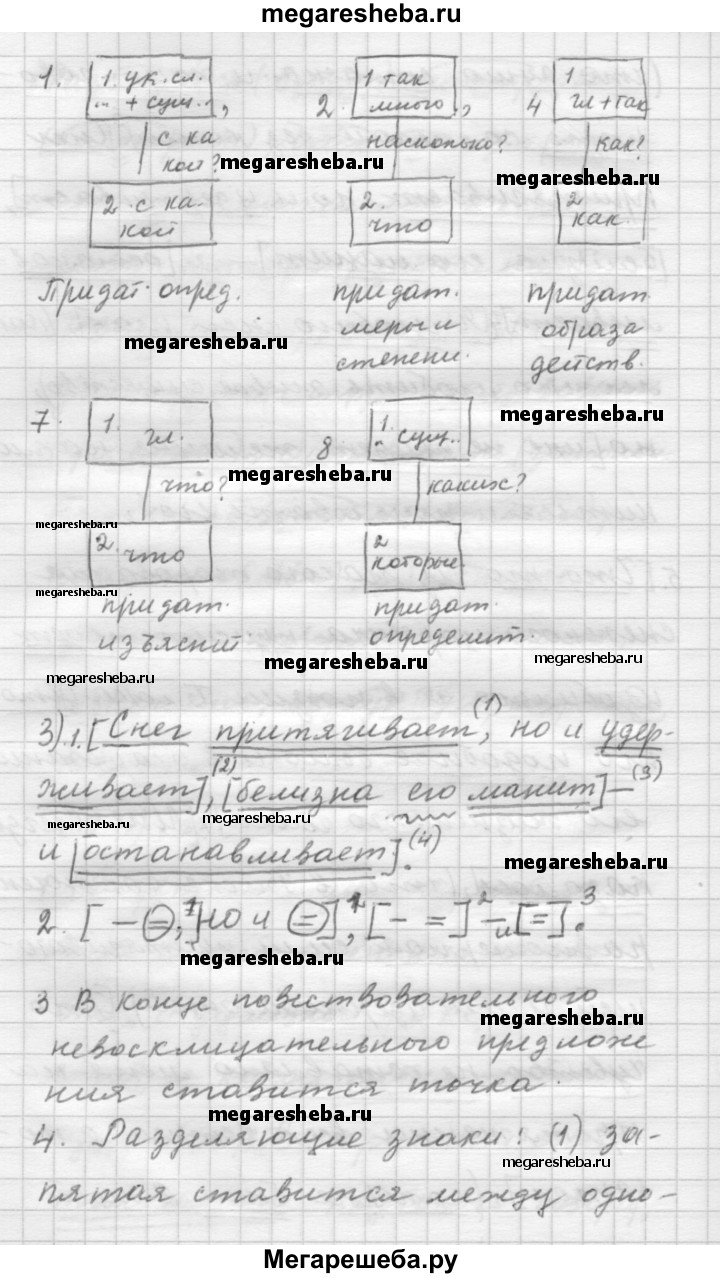 megaresheba.ru
1. 1. ук. сл. .. + сущ. .. ,
2. 1 так много ,
4 1 гл + так
с ка кой?
насколько?
как?
megaresheba.ru
megaresheba.ru
2 с ка- кой
2. что
2 как
Придат. опред.
придат. меры и степени.
придат. образа действ.
megaresheba.ru
megaresheba.ru
7. 1. гл.
8 1. .. сущ. ..
megaresheba.ru
что?
каких?
megaresheba.ru
2. что
2 которые
megaresheba.ru
придат. изъяснит
придат. определит.
megaresheba.ru
megaresheba.ru
megaresheba.ru
3).1. [Снег притягивает,(1) но и удер-
живает],(2) [белизна его манит] –(3)
megaresheba.ru
megaresheba.ru
и [останавливает].(4)
megaresheba.ru
2. [ – =,1] но и =],1 [ – = ]2 – и [=].3
megaresheba.ru
3 В конце повествовательного
megaresheba.ru
невосклицательного предложе
ния ставится точка.
megaresheba.ru
4. Разделяющие знаки: (1) за-
megaresheba.ru
пятая ставится между одно-
Мегарешеба.ру